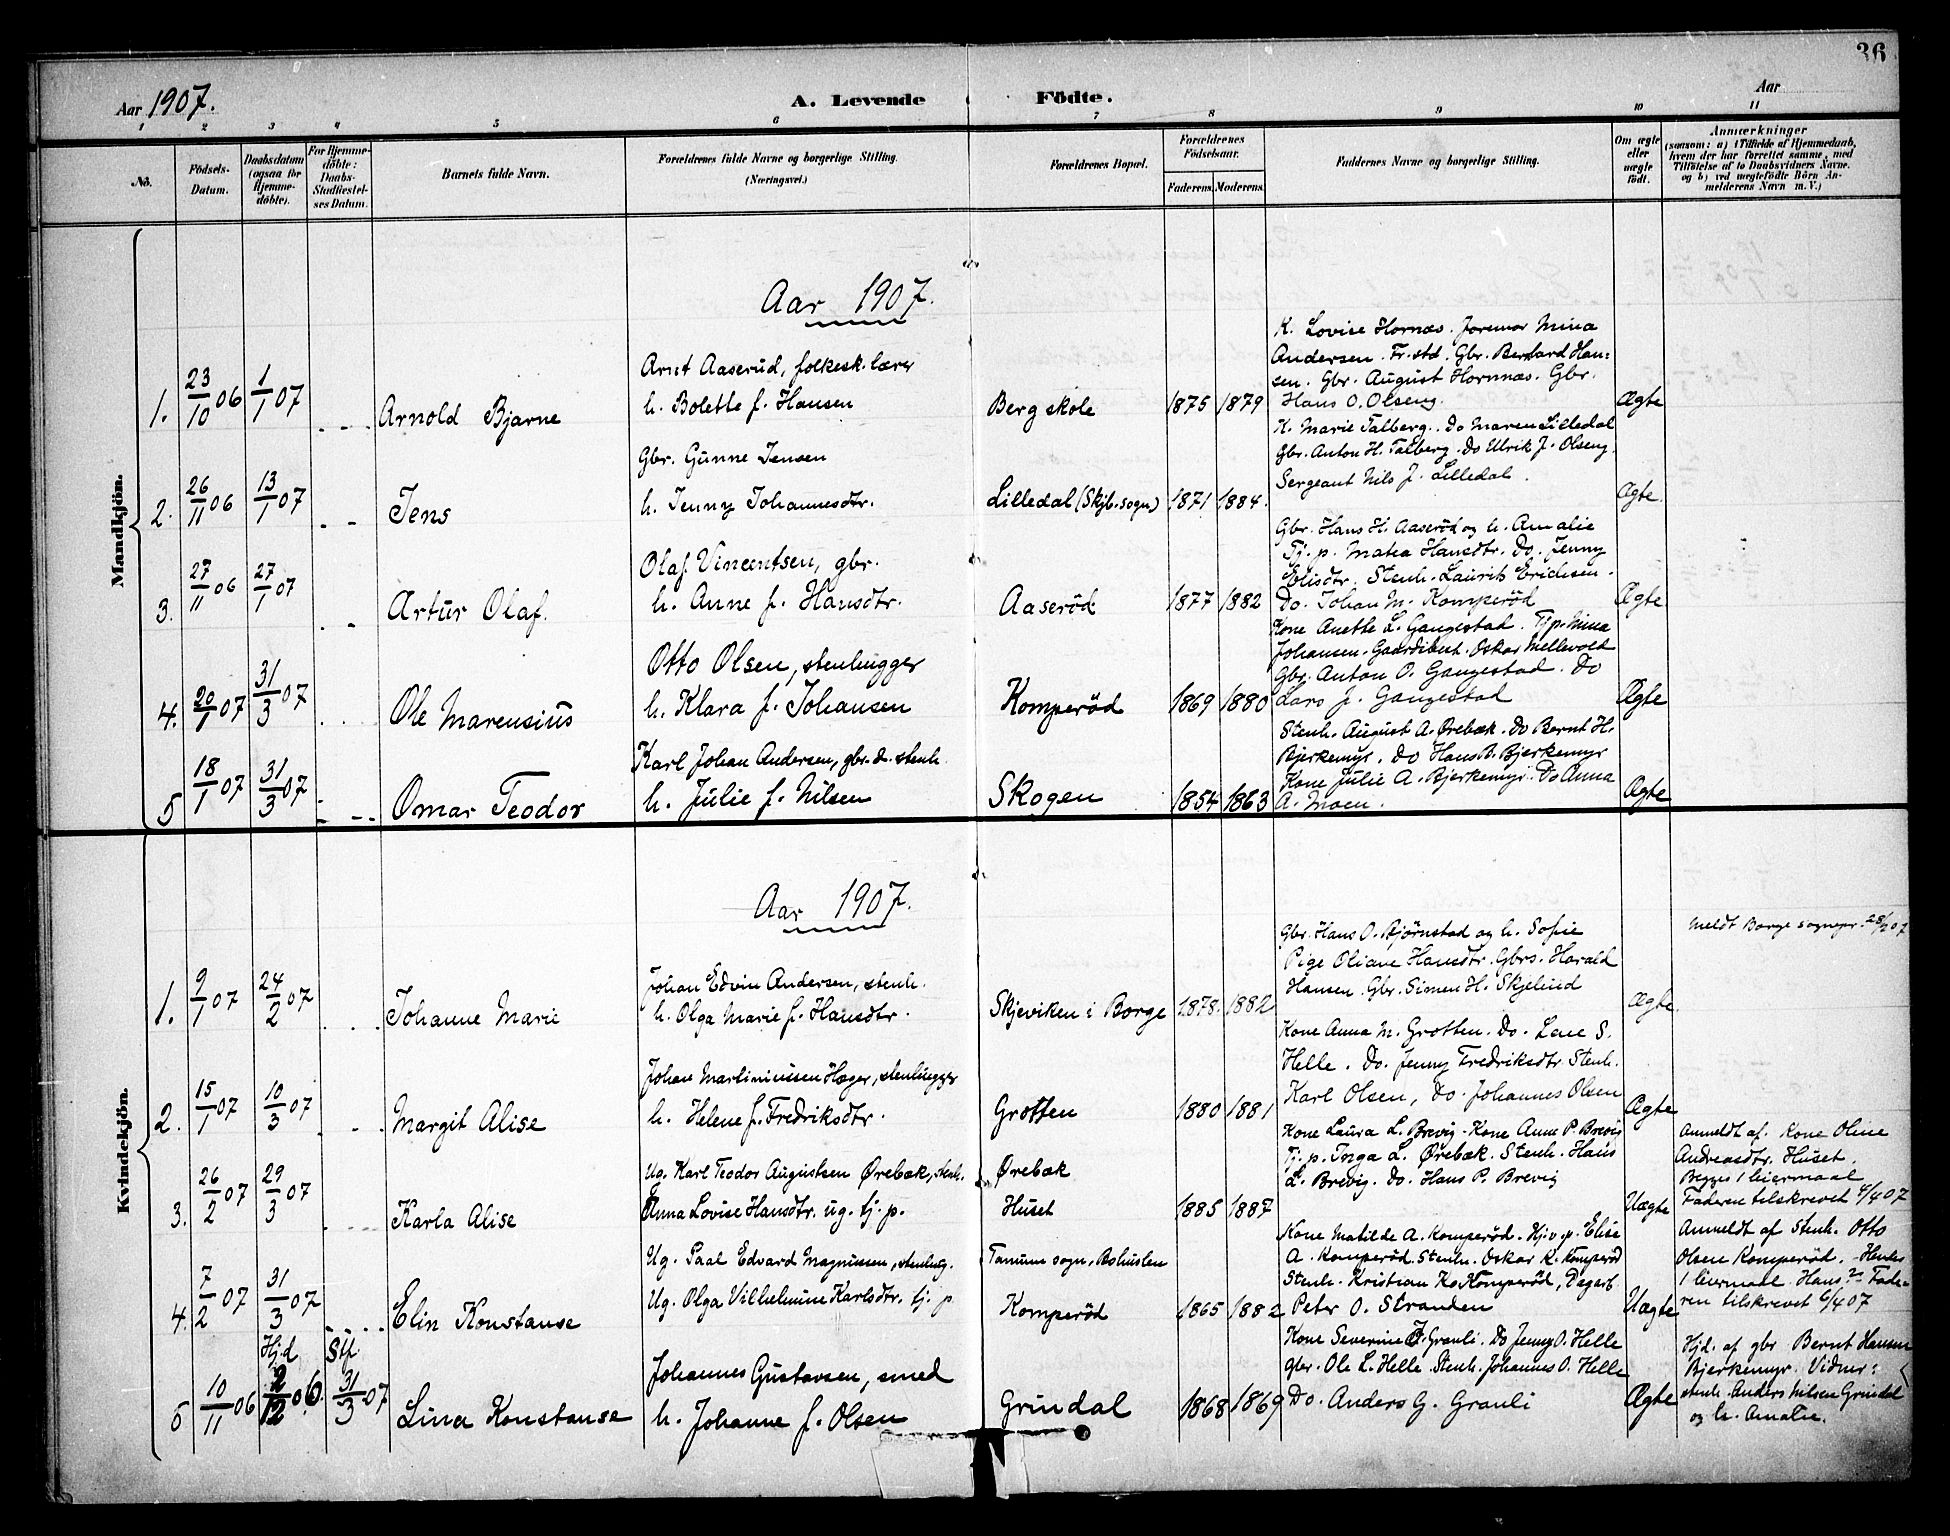 36
Aar 1907.
A. Levende Födte.
Aar
1 2 3 4 5 6 7 8 9 10 11
No.
Födsels-Datum.
Daabsdatum (ogsaa for Hjemme-döbte).
For Hjemme-döbte: Daabs-Stadfæstel-ses Datum.
Barnets fulde Navn.
Forældrenes fulde Navne og borgerlige Stilling.
(Næringsvei.)
Forældrenes Bopæl.
Forældrenes Födselsaar.
Faderens. Moderens.
Faddernes Navne og borgerlige Stilling.
Om ægte eller uægte födt.
Anmærkninger
(saasom: a) i Tilfælde af Hjemmedaab,
hvem der har forrettet samme, med
Tilföielse af to Daabsvidners Navne,
og b) ved uægtefödte Börn An-
melderens Navn m. V.)
Mandkjön.
Aar 1907.
1. 23/10 06 1/1 07 - - - Arnold Bjarne
Arnt Aaserud, folkesk. lærer
h. Bolette f. Hansen
Berg skole 1875 1879
K. Lovise Hornæs. Jormor Mina
Andersen. Fr. std. Gbr. Bernard Han=
sen. Gbr. August Hornnæs. Gbr.
Hans O. Olseng.
Ægte
2. 26/11 06 13/1 07 - - Jens
Gbr. Gunne Jensen
h. Jenny Johannesdtr.
Lilledal (Skjb. sogn) 1871 1884.
K. Marie Talberg. Do Maren Lilledal
Gbr. Anton H. Talberg. Do Ulrik J. Olseng.
Sergeant Nils J. Lilledal.
Ægte.
3. 27/11 06 27/1 07 - - Artur Olaf.
Olaf Vincentsen, gbr.
h. Anne f. Hansdtr.
Aaseröd 1877 1882
Gbr. Hans H. Aaseröd og h. Amalie
Tj. p. Matea Hansdtr. Do. Jenny
Elisdtr. Stenh. Laurits Erichsen.
Do. Johan M. Komperöd
Ægte
4. 20/1 07 31/3 07 - - - Ole Marensius
Otto Olsen, stenhugger
h. Klara f. Johansen
Komperöd 1869 1880
Kone Anette L. Gangestad. Tjp. Mina
Johansen. Gaardbest. Oskar Mellevold
Gbr. Anton O. Gangestad. Do
Lars J. Gangestad
Ægte
5 18/1 07 31/3 07 - - - Omar Teodor
Karl Johan Andersen, gbr. & stenh.
h. Julie f. Nilsen
Skogen 1854 1863
Stenh. August A. Ørebæk. Do Bernt H.
Bjerkemyr. Do Hans B. Bjerkemyr
Kone Julie A. Bjerkemyr. Do Anna
A. Moen.
Ægte
Kvindekjön.
Aar 1907.
1. 9/1 07 24/2 07 - - - Johanne Marie
Johan Edvin Andersen, stenh.
h. Olga Marie f. Hansdtr.
Skjeviken i Borge 1878. 1882
Gbr. Hans O. Bjørnstad og h. Sofie
Pige Oliane Hansdtr. Gbrs. Harald
Hansen. Gbr. Simen H. Skjelind
Ægte.
Meldt Borge sognepr. 28/2 07
2. 15/1 07 10/3 07 - - - Margit Alise
Johan Martiniussen Hager, stenhugger
h. Helene f. Fredriksdtr.
Grotten 1880 1881
Kone Anna M. Grotten. Do. Lene S.
Helle. Do. Jenny Fredriksdtr. Stenh.
Karl Olsen, Do. Johannes Olsen
Ægte
3. 26/2 07 29/3 07 - - - Karla Alise
Ug. Karl Teodor Augustsen Ørebæk, stenh.
Anna Lovise Hansdtr. ug. tj. p.
Ørebæk
Huset 1885 1887
Kone Laura L. Brevig. Kone Anne P. Brevig
Tj. p. Inga L. Ørebæk. Stenh. Hans
L. Brevig. Do. Hans P. Brevig
Uægte
Anmeldt af. Kone Oline
Andreasdtr. Huset.
Begges 1 leiermaal
Faderen tilskrevet 4/4 07
4. 7/2 07 31/3 07 - - - Elin Konstanse
Ug. Paal Edvard Magnussen, stenhug.
Ug. Olga Vilhelmine Karlsdtr. tj. p
Tanum sogn, Bohuslen
Komperöd 1865 1882
Kone Matilde A. Komperöd. Hjv. p. Elise
A. Komperöd. Stenh. Oskar K. Komperöd
Stenh. Kristian K. Komperöd, Dagarb.
Peter O. Stranden
Uægte
Anmeldt af Stenh. Otto
Olsen Komperöd. Hendes
1 leiermaal Hans 2. Fade-
ren tilskrevet 6/4 07
5 10/11 06 Hjd 2/12 06. Stf. 31/3 07 Lina Konstanse
Johannes Gustavsen, smed
h. Johanne f. Olsen
Grindal 1868 1869
Kone Severine J. Granli. Do Jenny O. Helle
gbr. Ole L. Helle. Stenh. Johannes O. Helle
Do. Anders G. Granli
Ægte
Hjd. af gbr Bernt Hansen
Bjerkemyr. Vidner:
stenh. Anders Nilsen Grindal
og h. Amalie.